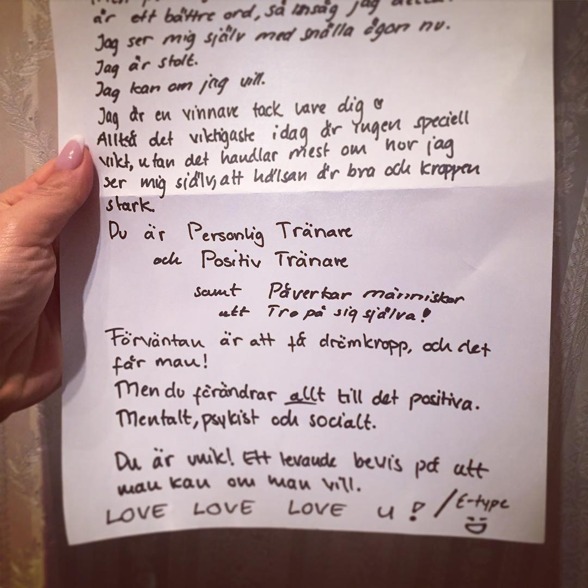 är ett bättre ord, så insåg jag
Jag ser mig själv med snälla ögon nu.
Jag är stolt.
Jag kan om jag vill.
Jag är en vinnare tack vare dig
Alltså det viktigaste idag är ingen speciell
vikt, utan det handlar mest om hor jag
ser mig själv, att hälsan är bra och kroppen
stark.
Du är Personlig Tränare
och Positiv Tränare
samt Påverkar människor
att Tro på sig själva!
Förväntan är att få drömkropp, och det
får man!
Men du förändrar allt till det positiva.
Mentalt, psykist och socialt.
Du är unik! Ett levande bevis på att
man kan om man vill.
LOVE LOVE LOVE u! /E-type